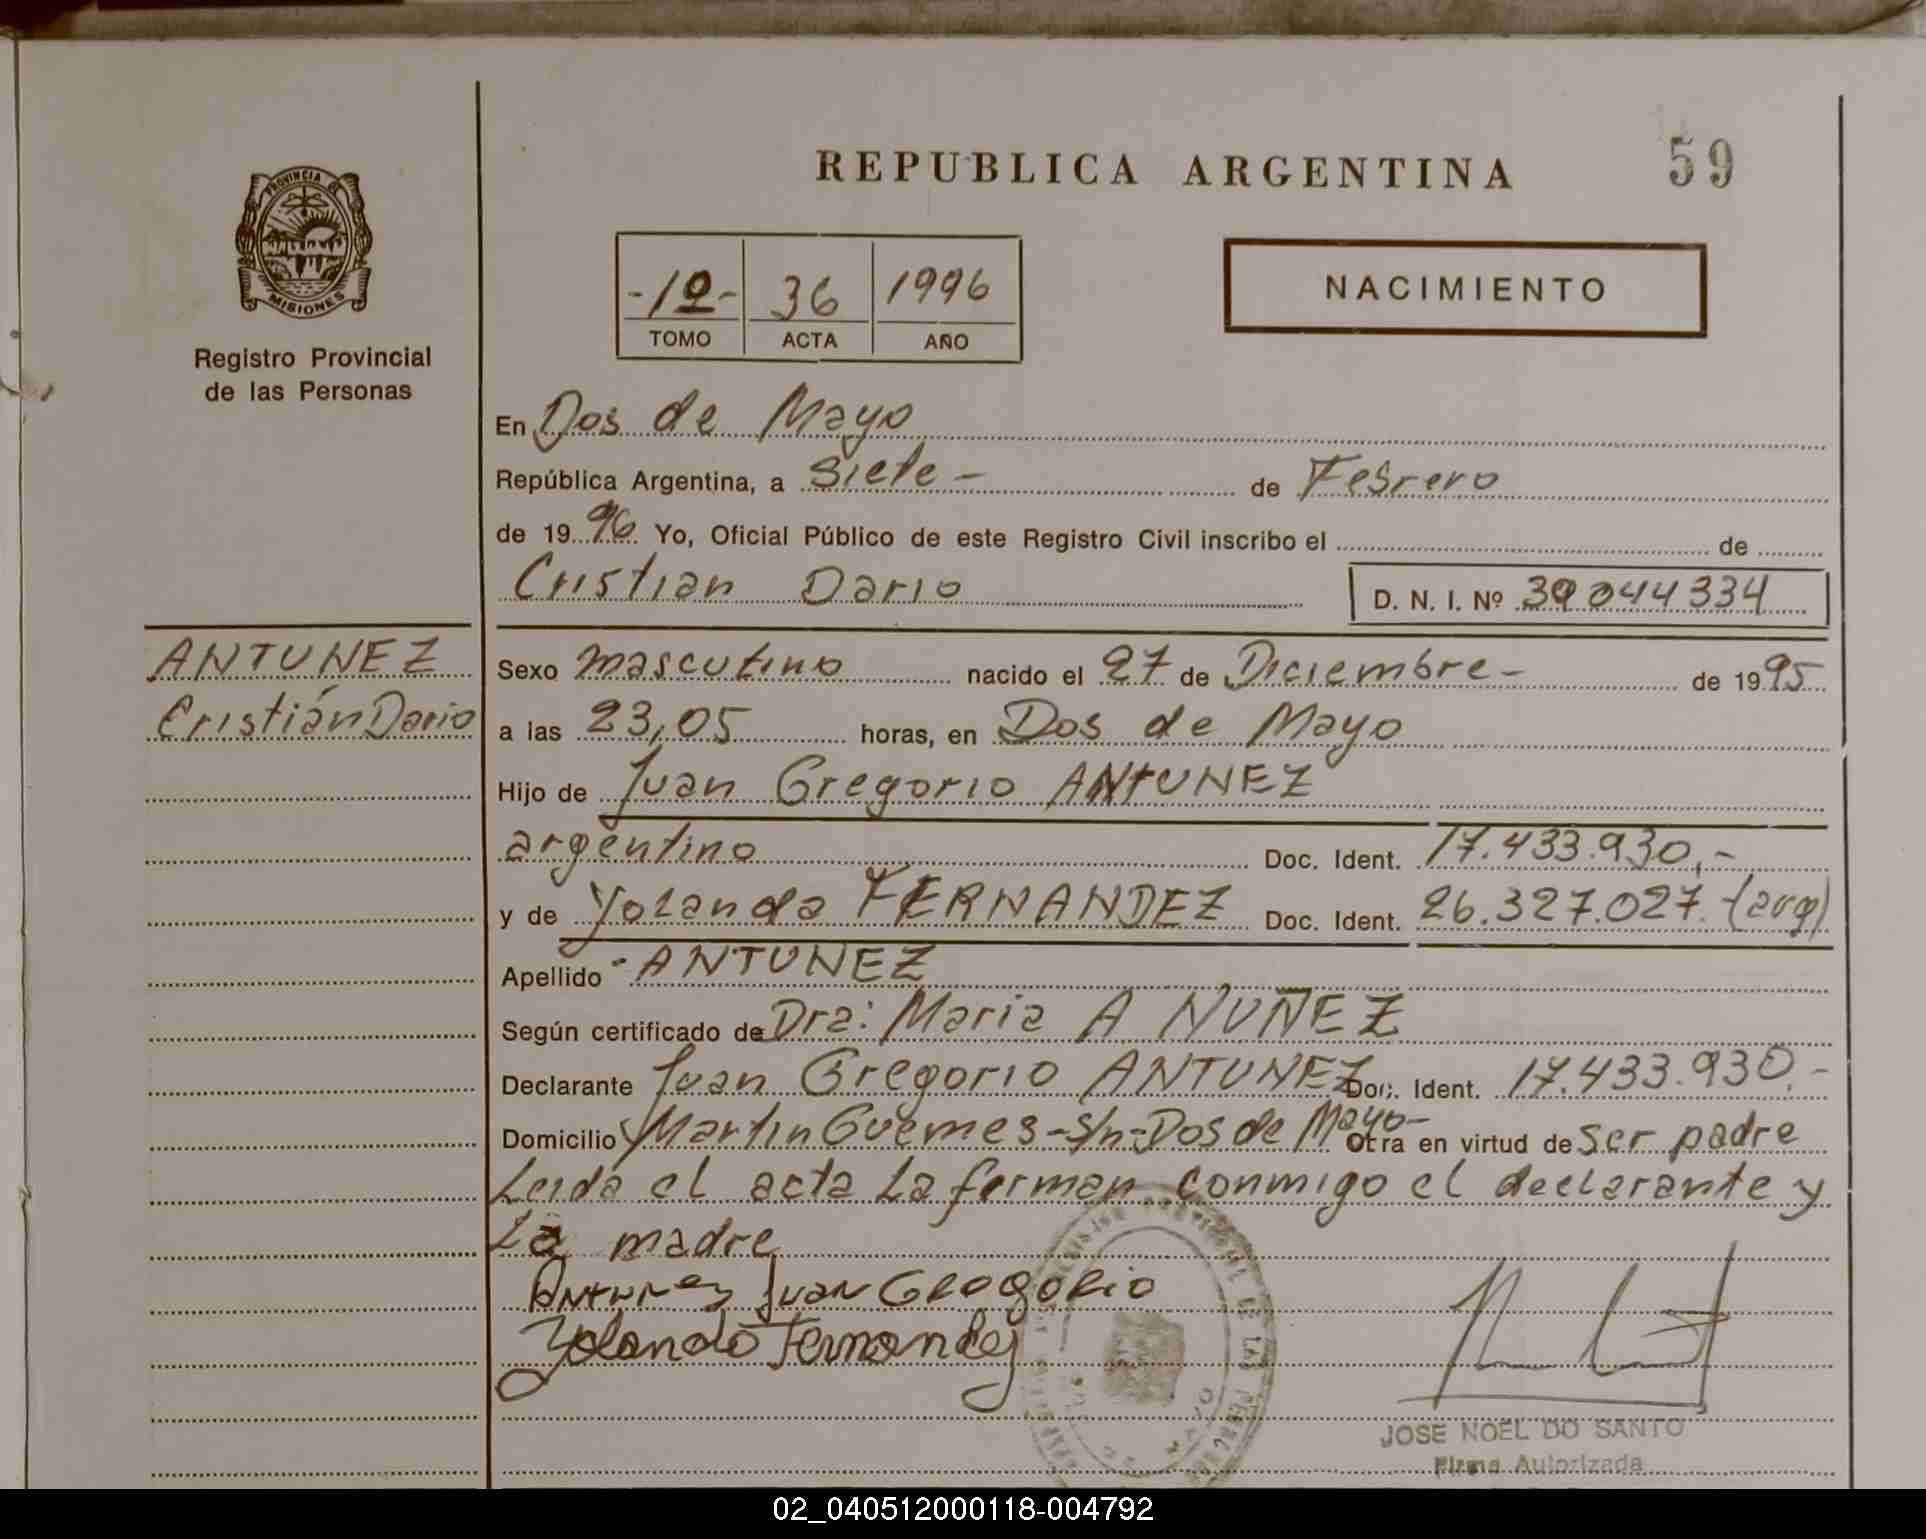 REPUBLICA ARGENTINA
59
PROVINCIA DE
MISIONES
Registro Provincial
de las Personas
-1º- 36 1996
TOMO ACTA AÑO
NACIMIENTO
En Dos de Mayo
República Argentina, a Siete - de Febrero
de 1996 Yo, Oficial Público de este Registro Civil inscribo el de
Cristian Dario D. N. I. Nº 39044334
ANTUNEZ
Cristián Dario
Sexo masculino nacido el 27 de Diciembre - de 1995
a las 23,05 horas, en Dos de Mayo
Hijo de Juan Gregorio ANTUNEZ
argentino Doc. Ident. 17.433.930,-
y de Yolanda FERNANDEZ Doc. Ident. 26.327.027.-(arg)
Apellido - ANTUNEZ
Según certificado de Dra: Maria A NUÑEZ
Declarante Juan Gregorio ANTUNEZ Doc. Ident. 17.433.930.-
Domicilio Martin Guemes - S/n - Dos de Mayo - Otra en virtud de ser padre
Leida el acta La firman conmigo el declarante y
La madre
Antunez Juan Gregorio
Yolanda Fernandez
JOSE NOEL DO SANTO
Firma Autorizada
02_040512000118-004792